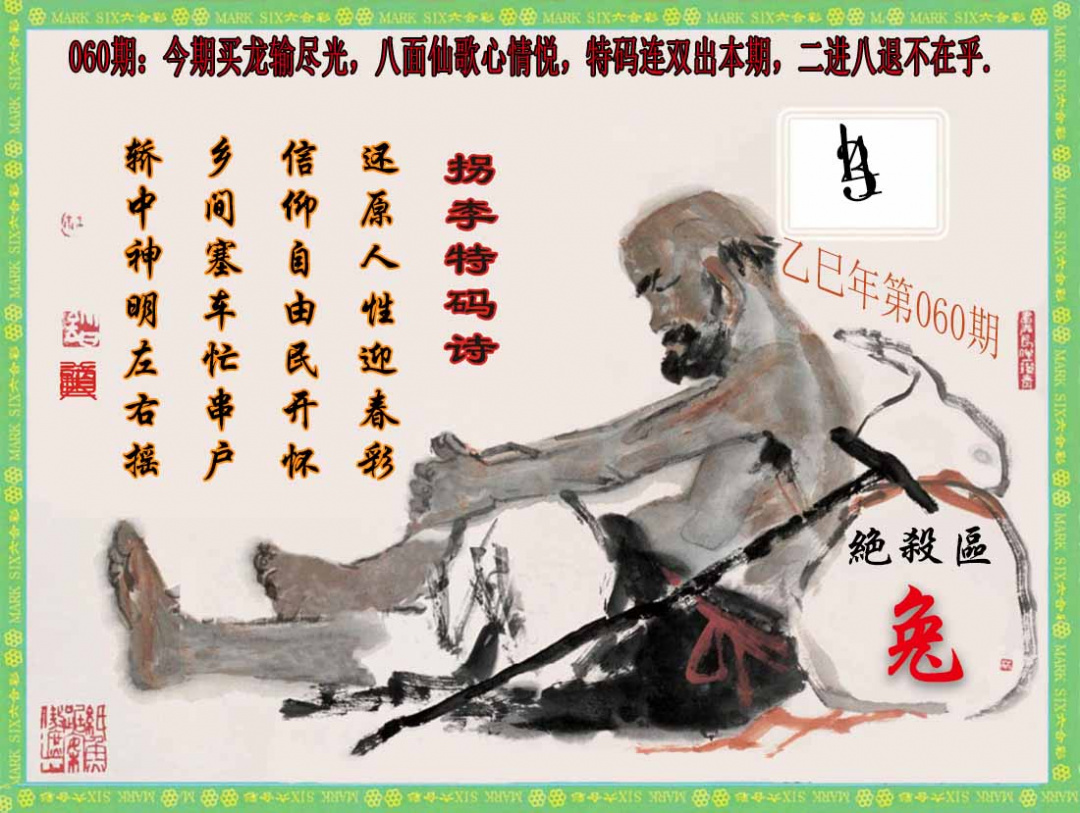 MARK SIX六合彩 MARK SIX六合彩 MARK SIX六合彩 MARK SIX六合彩 MARK SIX六合彩 MARK SIX六合彩
060期：今期买龙输尽光，八面仙歌心情悦，特码连双出本期，二进八退不在乎.
拐李特码诗
还原人性迎春彩
信仰自由民开怀
乡间塞车忙串户
轿中神明左右摇
乙巳年第060期
絕殺區
兔